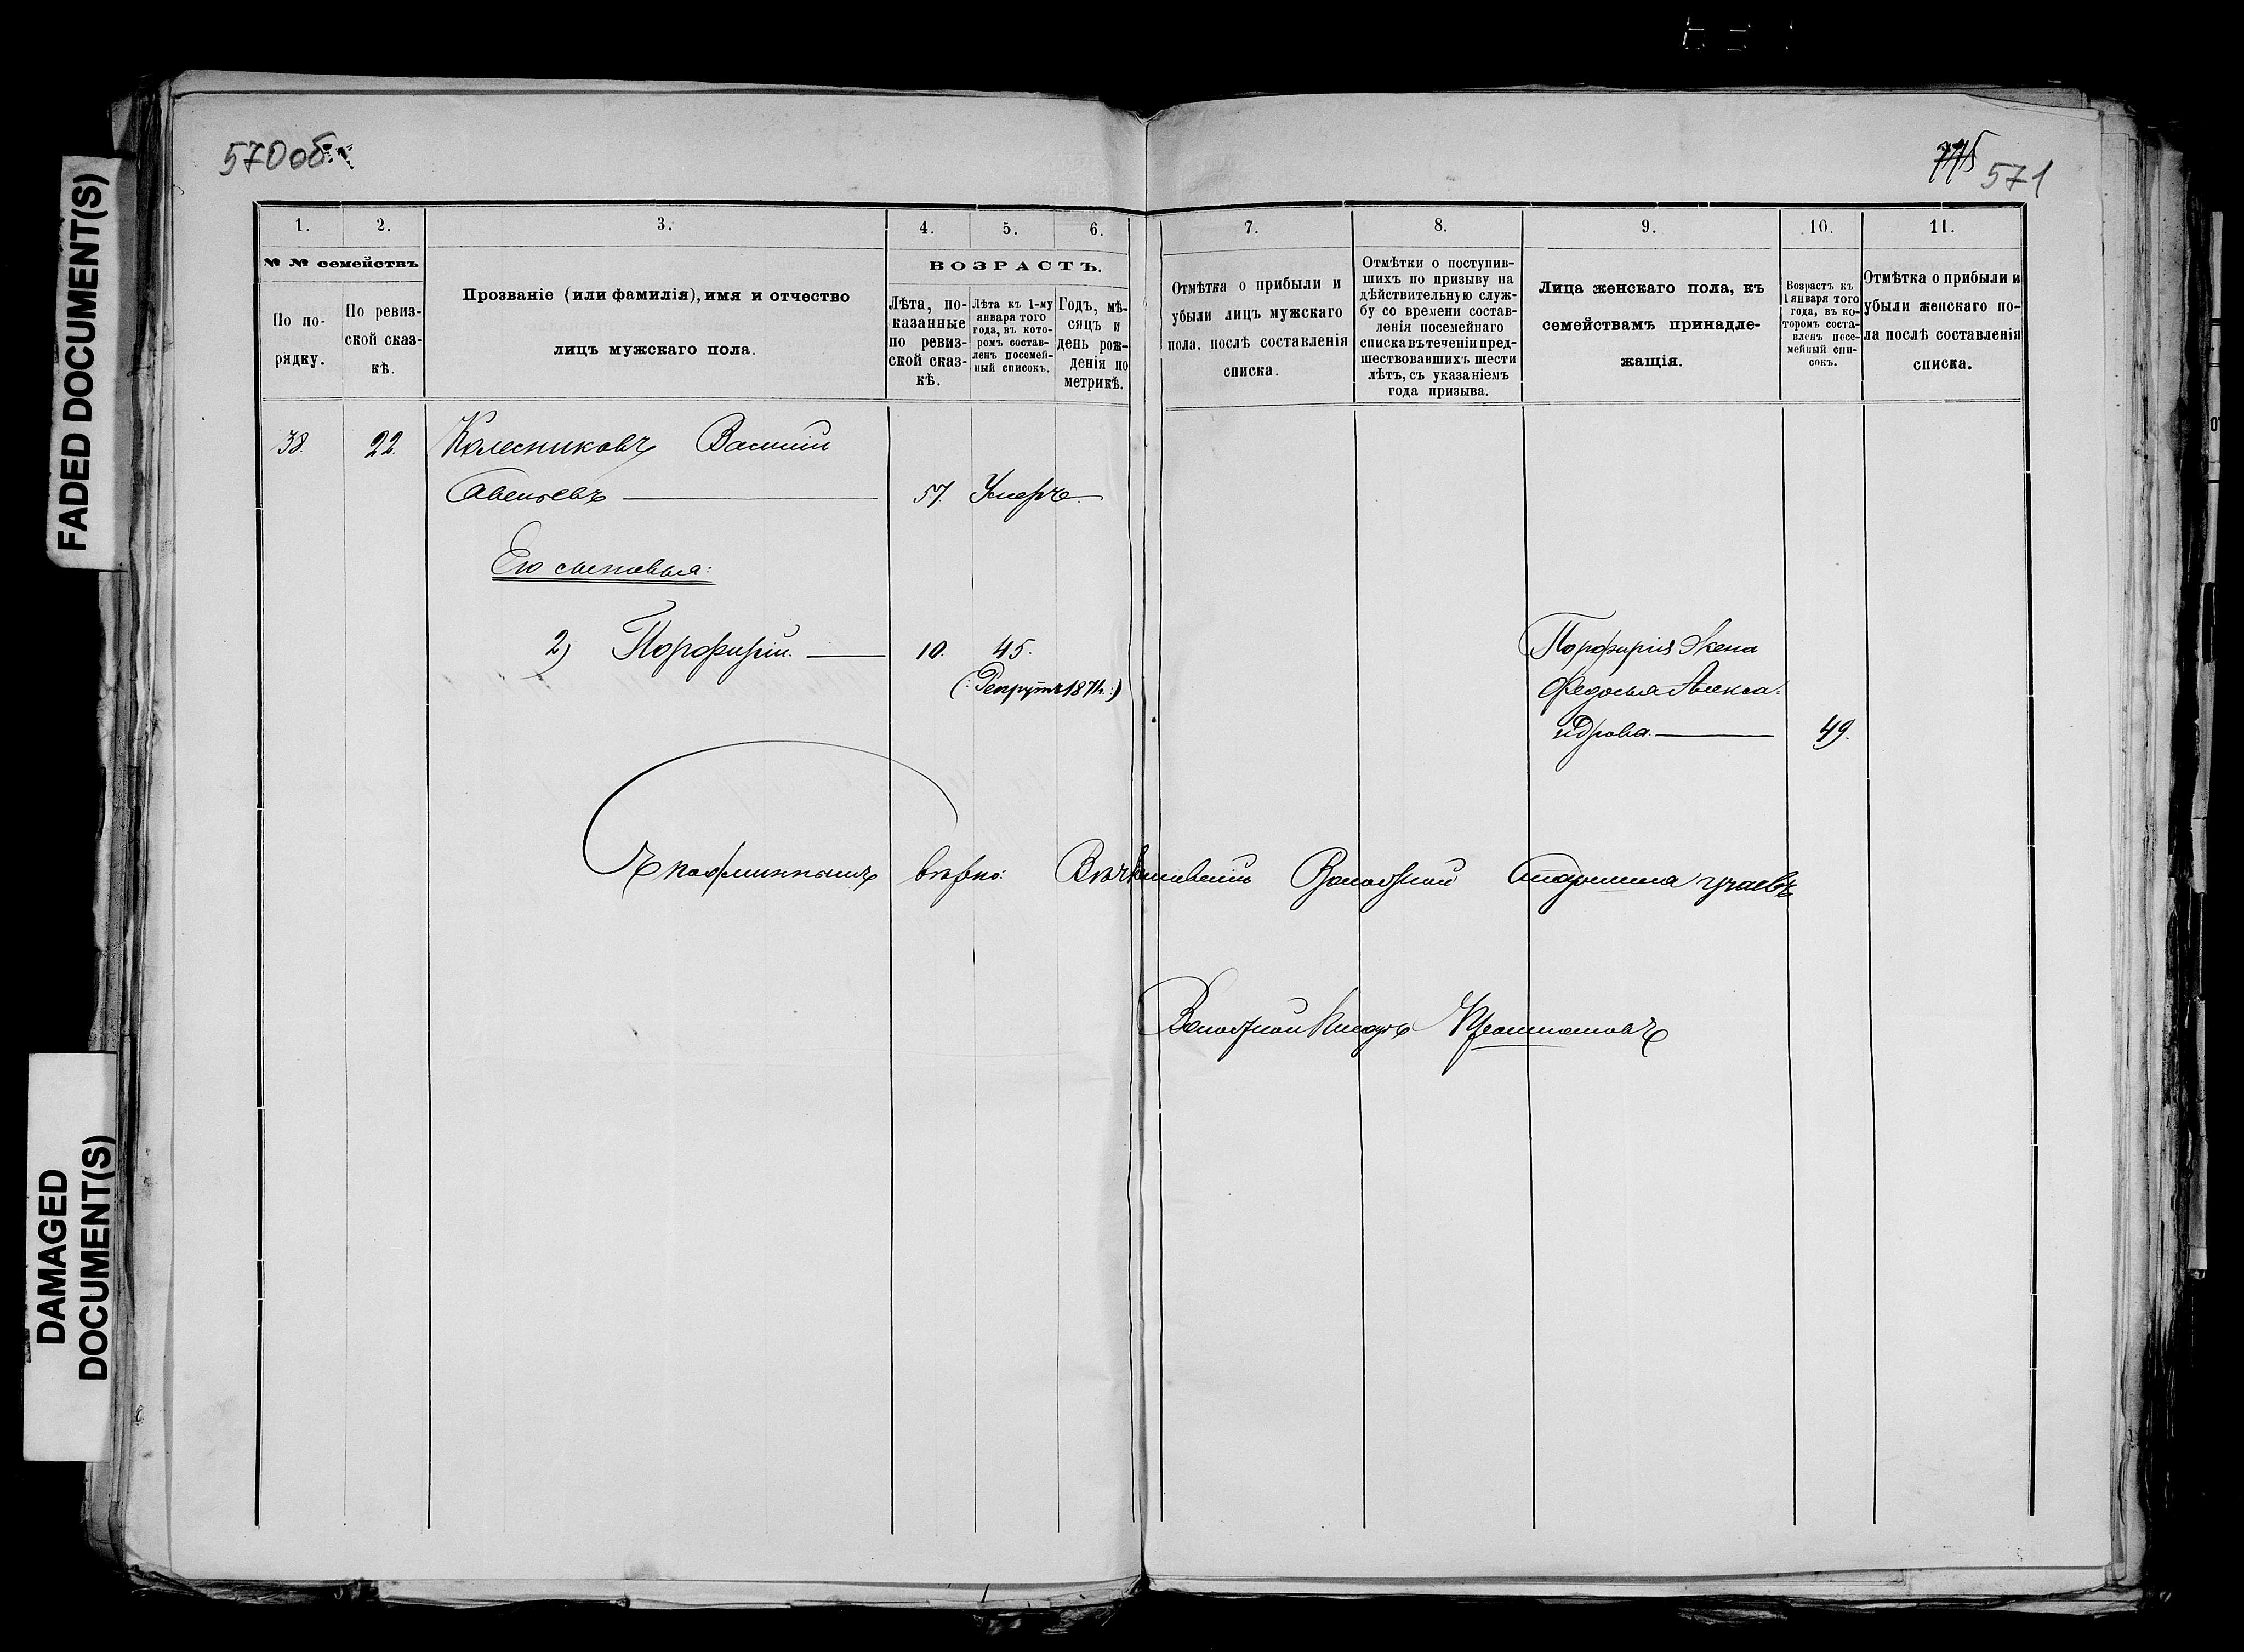 FADED DOCUMENT(S)
DAMAGED
DOCUMENT(S)
570об.
571
1.
2.
3.
4.
5.
6.
№ № семействъ
По по-
рядку.
По ревиз-
ской сказ-
кѣ.
Прозваніе (или фамилія), имя и отчество
лицъ мужскаго пола.
ВОЗРАСТЪ.
Лѣта, по-
казанные
по ревиз-
ской сказ-
кѣ.
Лѣта къ 1-му
января того
года, въ кото-
ромъ состав-
ленъ посемей-
ный списокъ.
Годъ, мѣ-
сяцъ и
день рож-
денія по
метрикѣ.
7.
8.
9.
10.
11.
Отмѣтка о прибыли и
убыли лицъ мужскаго
пола, послѣ составленія
списка.
Отмѣтки о поступив-
шихъ по призыву на
дѣйствительную служ-
бу со времени состав-
ленія посемейнаго
списка въ теченіи пред-
шествовавшихъ шести
лѣтъ, съ указаніемъ
года призыва.
Лица женскаго пола, къ
семействамъ принадле-
жащія.
Возрастъ къ
1 января того
года, въ ко-
торомъ соста-
вленъ посе-
мейный спи-
сокъ.
Отмѣтка о прибыли и
убыли женскаго по-
ла послѣ составленія
списка.
38. 22. Колесниковъ Василій
Савельевъ 57. Умеръ.
Его сыновья:
2) Порфирій. 10. 45.
(: Рекрутъ 1871г. :)
Порфирія Жена
Федосья Алекса-
ндрова. 49.
Съ подлиннымъ вѣрно: Волостной Старшина
Волостной Писарь